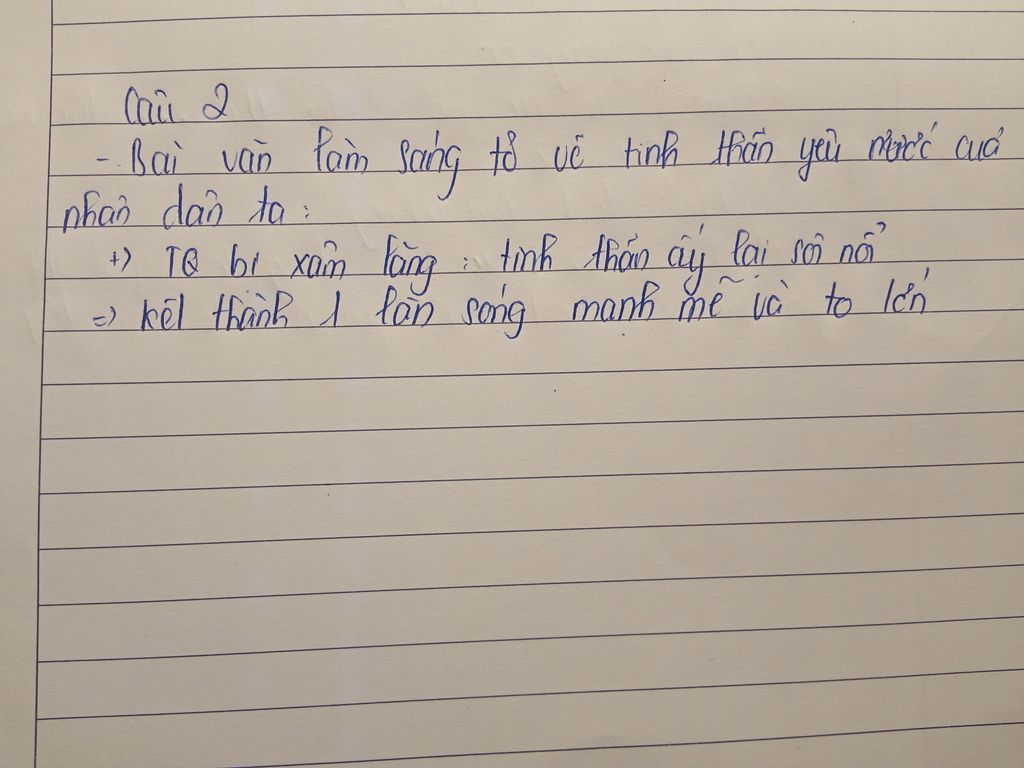 Câu 2
- Bài văn làm sáng tỏ về tinh thần yêu nước của
nhân dân ta :
+) TQ bị xâm lăng : tinh thần ấy lại sôi nổi
=) kết thành 1 làn sóng mạnh mẽ và to lớn